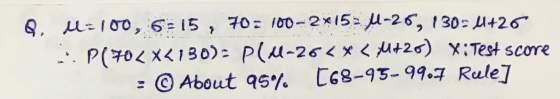 Q. μ=100, σ=15, 70=100-2×15=μ-2σ, 130=μ+2σ
∴ P(70<x<130)= P(μ-2σ<x<μ+2σ) X:Test score
= Ⓒ About 95% [68-95-99.7 Rule]